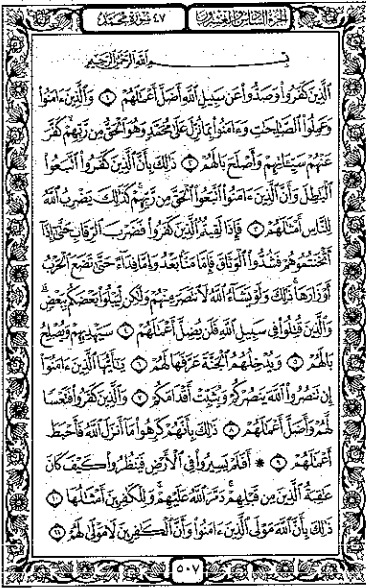 الجزء السادس والعشرون ٤٧ سورة محمد
بسم الله الرحمن الرحيم
ٱلَّذِينَ كَفَرُوا۟ وَصَدُّوا۟ عَن سَبِيلِ ٱللَّهِ أَضَلَّ أَعْمَٰلَهُمْ ١ وَٱلَّذِينَ ءَامَنُوا۟
وَعَمِلُوا۟ ٱلصَّٰلِحَٰتِ وَءَامَنُوا۟ بِمَا نُزِّلَ عَلَىٰ مُحَمَّدٍ وَهُوَ ٱلْحَقُّ مِن رَّبِّهِمْ كَفَّرَ
عَنْهُمْ سَيِّـَٔاتِهِمْ وَأَصْلَحَ بَالَهُمْ ٢ ذَٰلِكَ بِأَنَّ ٱلَّذِينَ كَفَرُوا۟ ٱتَّبَعُوا۟
ٱلْبَٰطِلَ وَأَنَّ ٱلَّذِينَ ءَامَنُوا۟ ٱتَّبَعُوا۟ ٱلْحَقَّ مِن رَّبِّهِمْ كَذَٰلِكَ يَضْرِبُ ٱللَّهُ
لِلنَّاسِ أَمْثَٰلَهُمْ ٣ فَإِذَا لَقِيتُمُ ٱلَّذِينَ كَفَرُوا۟ فَضَرْبَ ٱلرِّقَابِ حَتَّىٰٓ إِذَآ
أَثْخَنتُمُوهُمْ فَشُدُّوا۟ ٱلْوَثَاقَ فَإِمَّا مَنًّۢا بَعْدُ وَإِمَّا فِدَآءً حَتَّىٰ تَضَعَ ٱلْحَرْبُ
أَوْزَارَهَا ذَٰلِكَ وَلَوْ يَشَآءُ ٱللَّهُ لَٱنتَصَرَ مِنْهُمْ وَلَٰكِن لِّيَبْلُوَا۟ بَعْضَكُم بِبَعْضٍ
وَٱلَّذِينَ قُتِلُوا۟ فِى سَبِيلِ ٱللَّهِ فَلَن يُضِلَّ أَعْمَٰلَهُمْ ٤ سَيَهْدِيهِمْ وَيُصْلِحُ
بَالَهُمْ ٥ وَيُدْخِلُهُمُ ٱلْجَنَّةَ عَرَّفَهَا لَهُمْ ٦ يَٰٓأَيُّهَا ٱلَّذِينَ ءَامَنُوٓا۟
إِن تَنصُرُوا۟ ٱللَّهَ يَنصُرْكُمْ وَيُثَبِّتْ أَقْدَامَكُمْ ٧ وَٱلَّذِينَ كَفَرُوا۟ فَتَعْسًا
لَّهُمْ وَأَضَلَّ أَعْمَٰلَهُمْ ٨ ذَٰلِكَ بِأَنَّهُمْ كَرِهُوا۟ مَآ أَنزَلَ ٱللَّهُ فَأَحْبَطَ
أَعْمَٰلَهُمْ ٩ * أَفَلَمْ يَسِيرُوا۟ فِى ٱلْأَرْضِ فَيَنظُرُوا۟ كَيْفَ كَانَ
عَٰقِبَةُ ٱلَّذِينَ مِن قَبْلِهِمْ دَمَّرَ ٱللَّهُ عَلَيْهِمْ وَلِلْكَٰفِرِينَ أَمْثَٰلُهَا ١٠
ذَٰلِكَ بِأَنَّ ٱللَّهَ مَوْلَى ٱلَّذِينَ ءَامَنُوا۟ وَأَنَّ ٱلْكَٰفِرِينَ لَا مَوْلَىٰ لَهُمْ ١١
٥٠٧